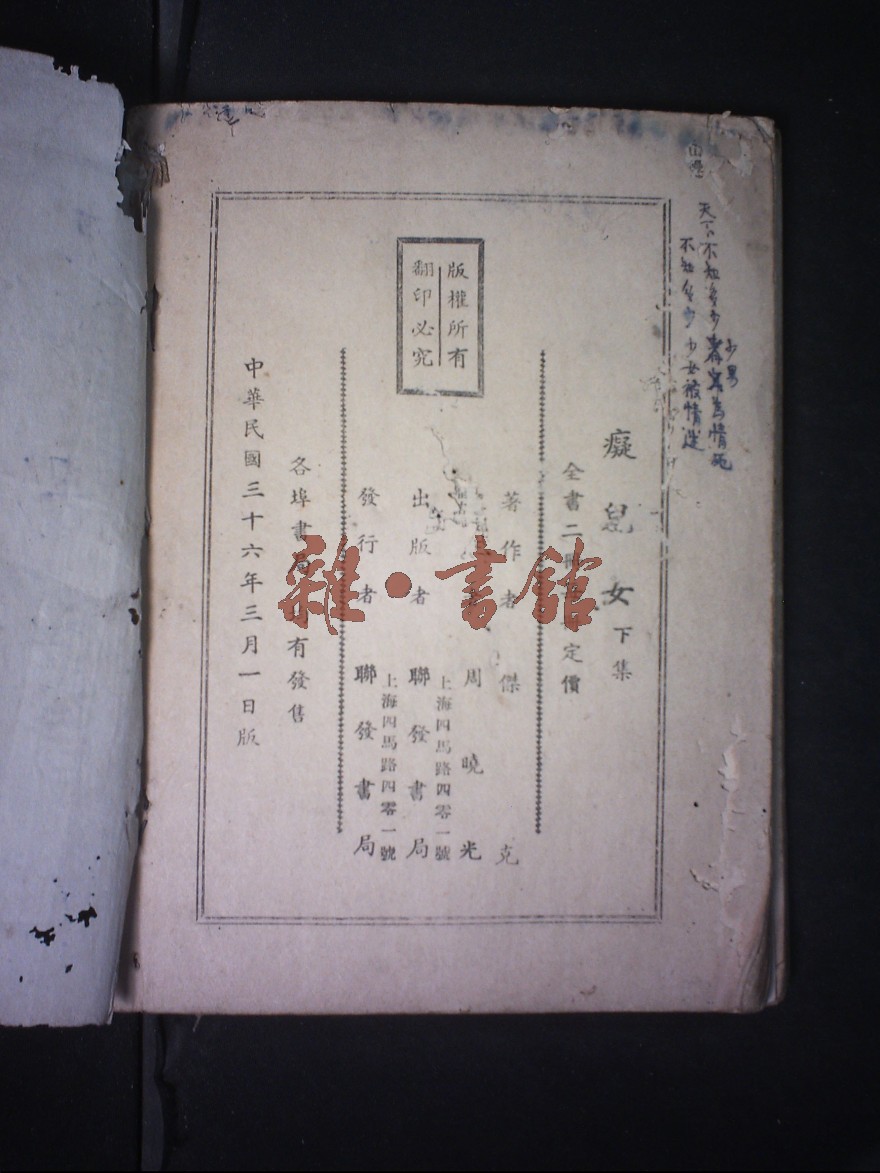 天下不知多少
少男
為情死
不知多少少女被情迷
癡兒女下集
全書二冊定價
著作者傑克
周曉光
出版者聯發書局
上海四馬路四零一號
發行者聯發書局
上海四馬路四零一號
版權所有
翻印必究
各埠書局有發售
中華民國三十六年三月一日版
雜·書館